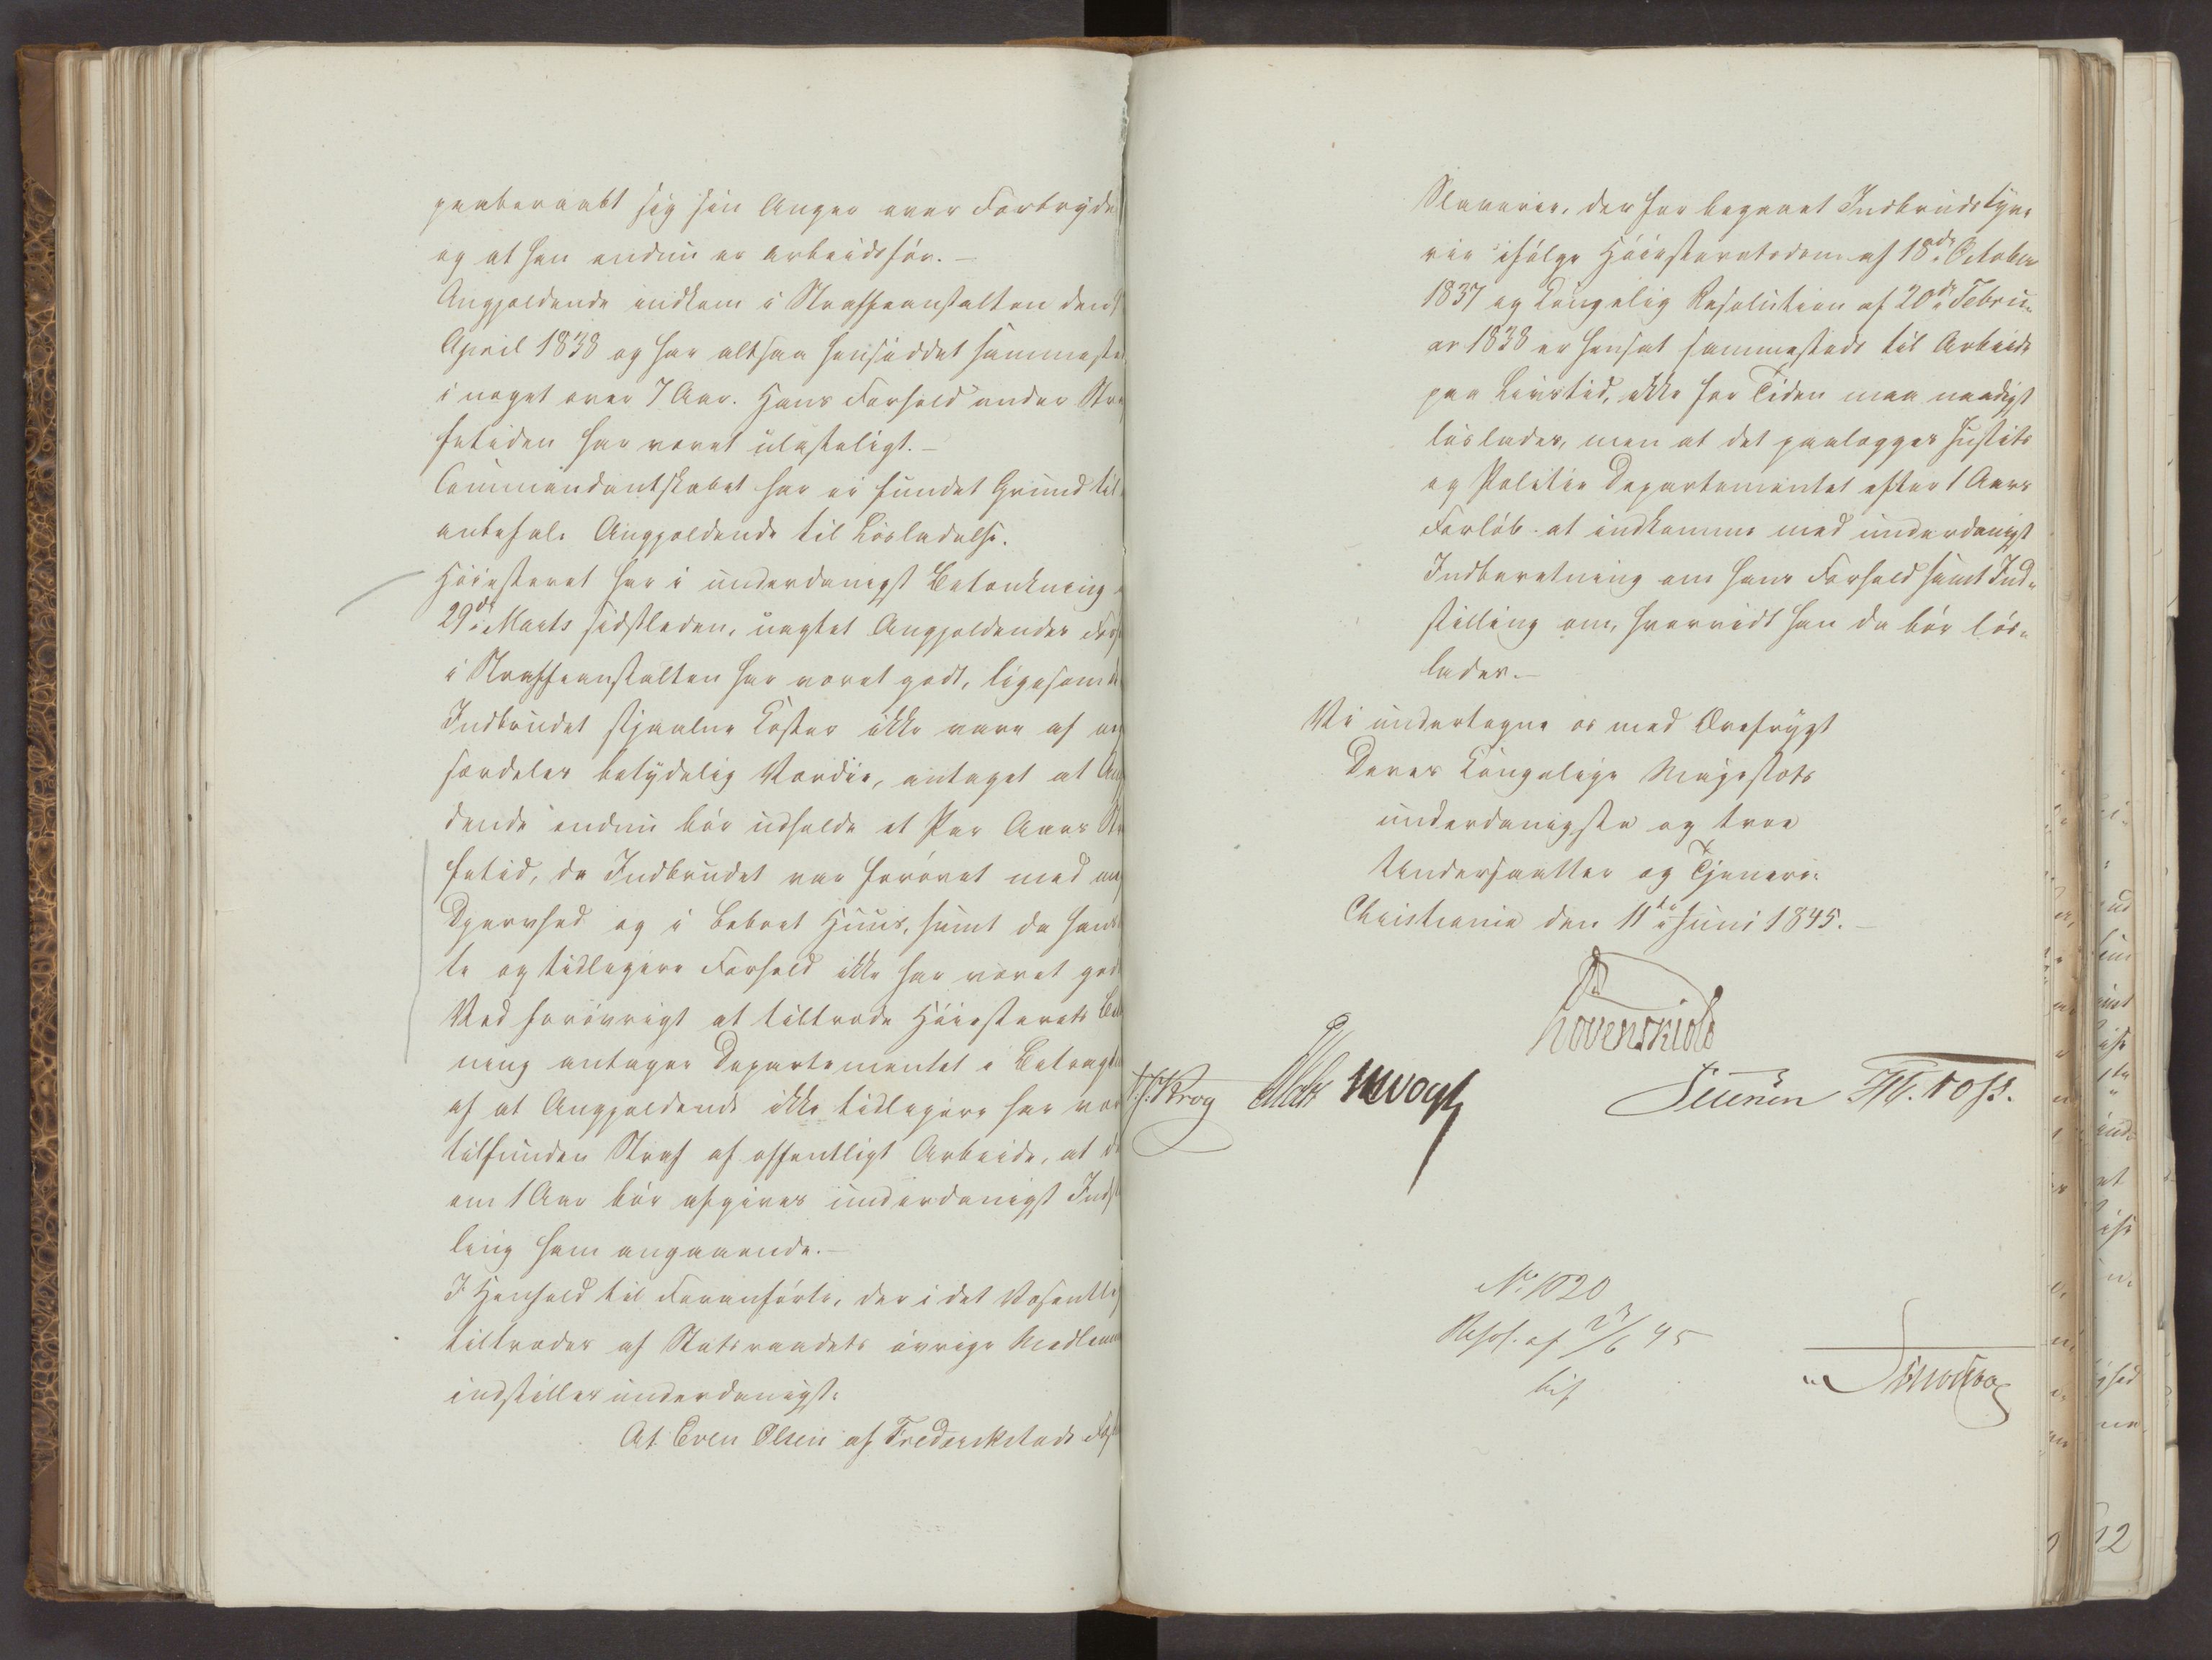 paaberaabt sig sin Anger over Forbryde
og at han endnu er arbeidsfør. —
Angjældende indkom i Straffeanstalten den
April 1838 og har altsaa hensiddet sammeste
i noget over 7 Aar. Hans Forhold under Stra
fetiden har været ulasteligt. —
Commandantskabet har ei fundet Grund til
anbefale Angjældende til Løsladelse.
Høiesteret har i underdanigst Betænkning
29de Marts sidstleden, uagtet Angjældendes For
i Straffeanstalten har været godt, ligesom de
Indbrudet stjaalne Koster ikke vare af en
særdeles betydelig Værdie, antaget at Ang
dende endnu bør udholde et Par Aars Str
fetid, da Indbrudet var forøvet med
Djervhed og i beboet Huus, samt da hans
te og tidligere Forhold ikke har været god
Ved forøvrigt at tiltræde Høiesterets Be
ning antager Departementet i Betragt
af at Angjældende ikke tidligere har vær
tilfunden Straf af offentligt Arbeide, at d
om 1 Aar bør afgives underdanigst Indst
ling ham angaaende. —
I Henhold til Foranførte, der i det Væsentlig
tiltrædes af Statsraadets øvrige Medlem
indstilles underdanigst:
At Even Olsen af Frederikstads Fæst
Slaverie, der for begaaet Indbrudstyve
rie ifølge Høiesteretsdom af 18de October
1837 og Kongelig Resolution af 20de Febru-
ar 1838 er hensat sammesteds til Arbeide
paa Livstid, ikke for Tiden maa naadigst
løslades, men at det paalægges Justits
og Politie Departementet efter 1 Aars
Forløb at indkomme med underdanigst
Indberetning om hans Forhold samt Ind-
stilling om, hvorvidt han da bør løs-
lades. —
Vi undertegne os med Ærefrygt
Deres Kongelige Majestæts
underdanigste og troe
Undersaatter og Tjenere:
Christiania den 11te Juni 1845. —
Løvenskiold
Krog Vogt
Foss.
No 1020
Resol. af 23/6 45
bif